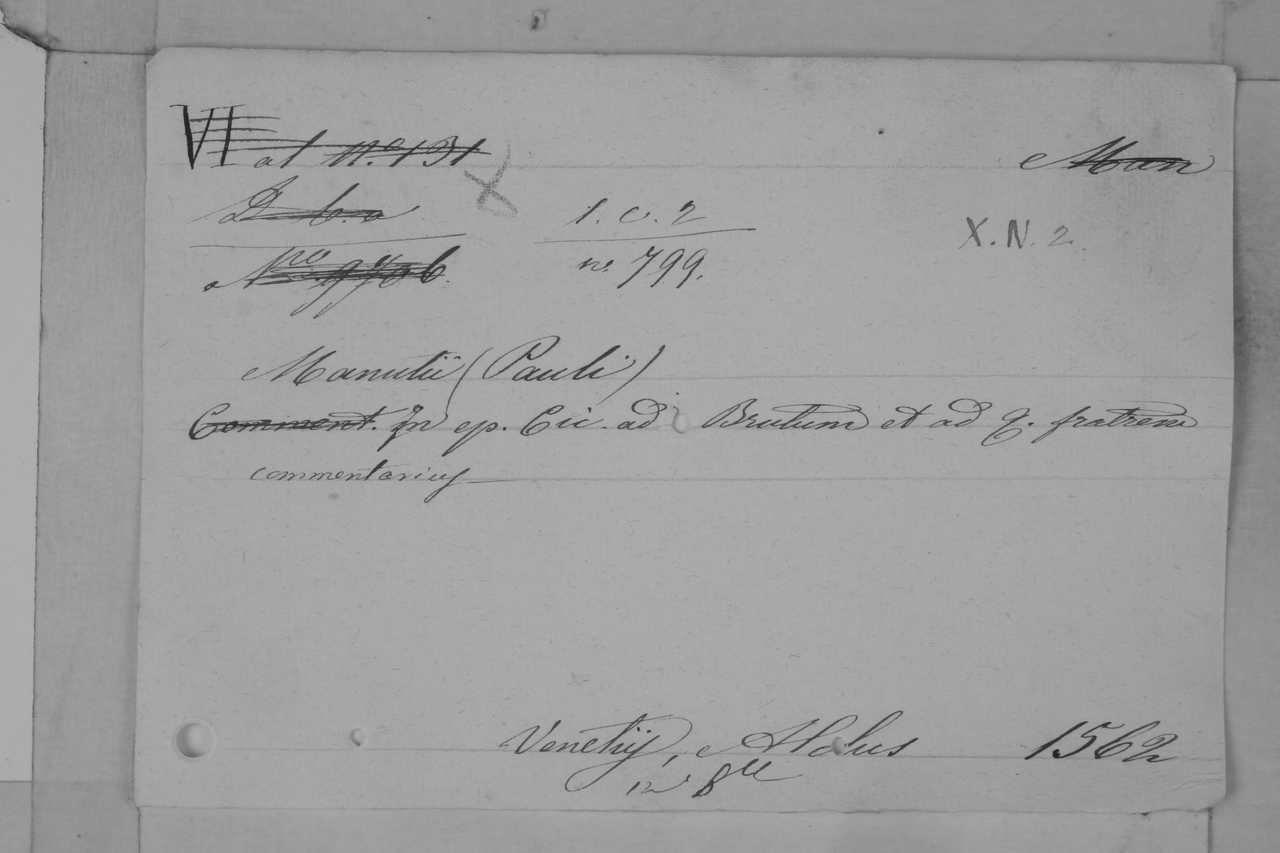 VI al nº 131
Man
B b. a
1. c. 2
X. N. 2
nº 799.
Manutii (Pauli)
Comment. In ep. Cic. ad Brutum et ad Q. fratrem
commentarius
Venetiis, Aldus 1562
in 8º